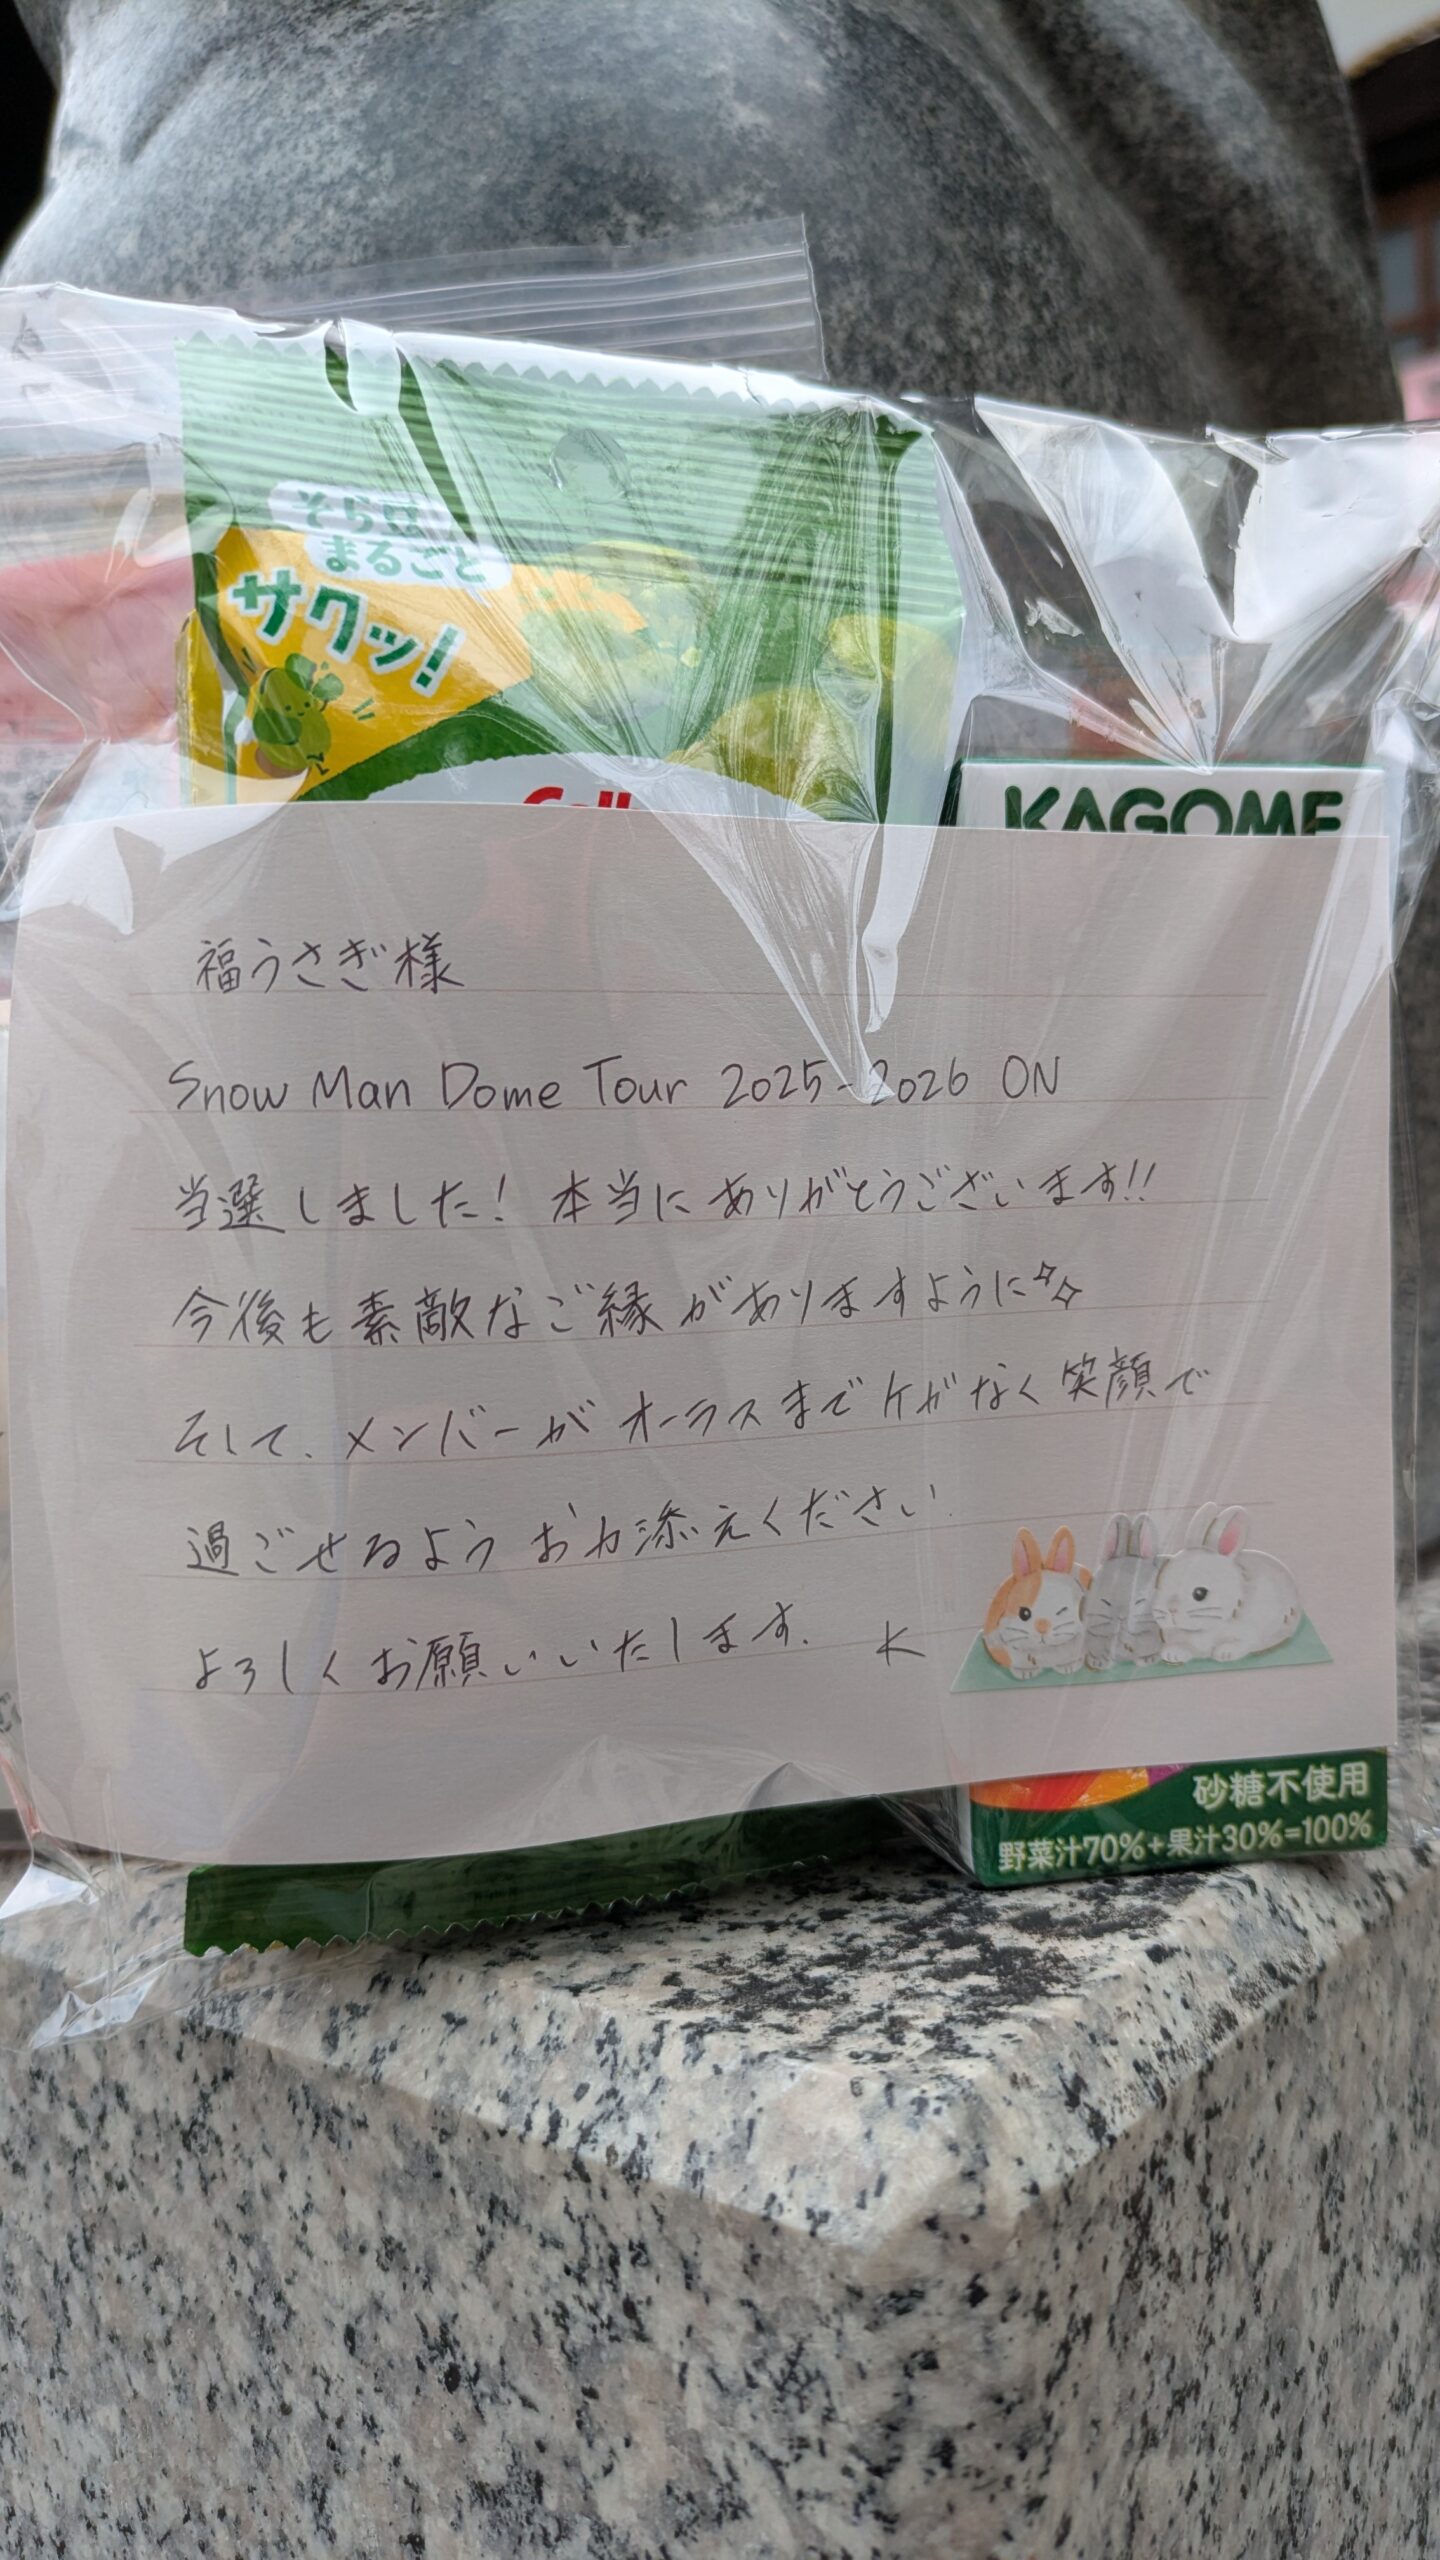 そら豆
まるごと
サクッ!
KAGOME
福うさぎ様
Snow Man Dome Tour 2025-2026 ON
当選しました! 本当にありがとうございます!!
今後も素敵なご縁がありますように
そして、メンバーがオーラスまでケガなく笑顔で
過ごせるようお力添えください
よろしくお願いいたします. K
砂糖不使用
野菜汁70%+果汁30%=100%